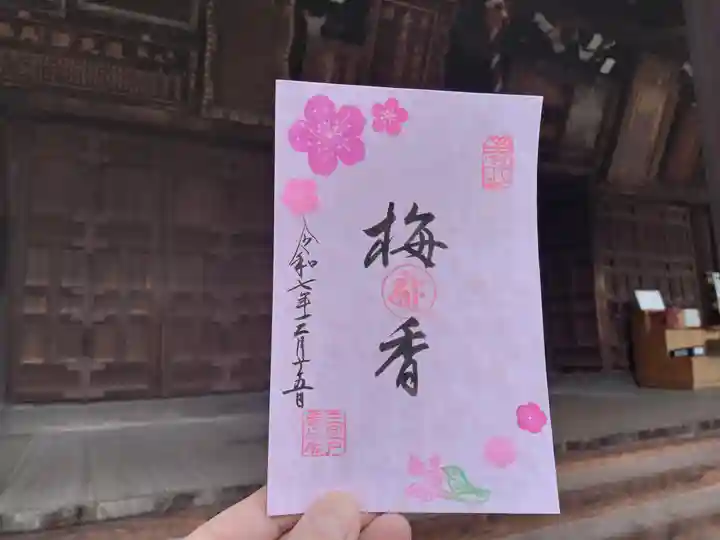 梅香
令和七年三月十五日